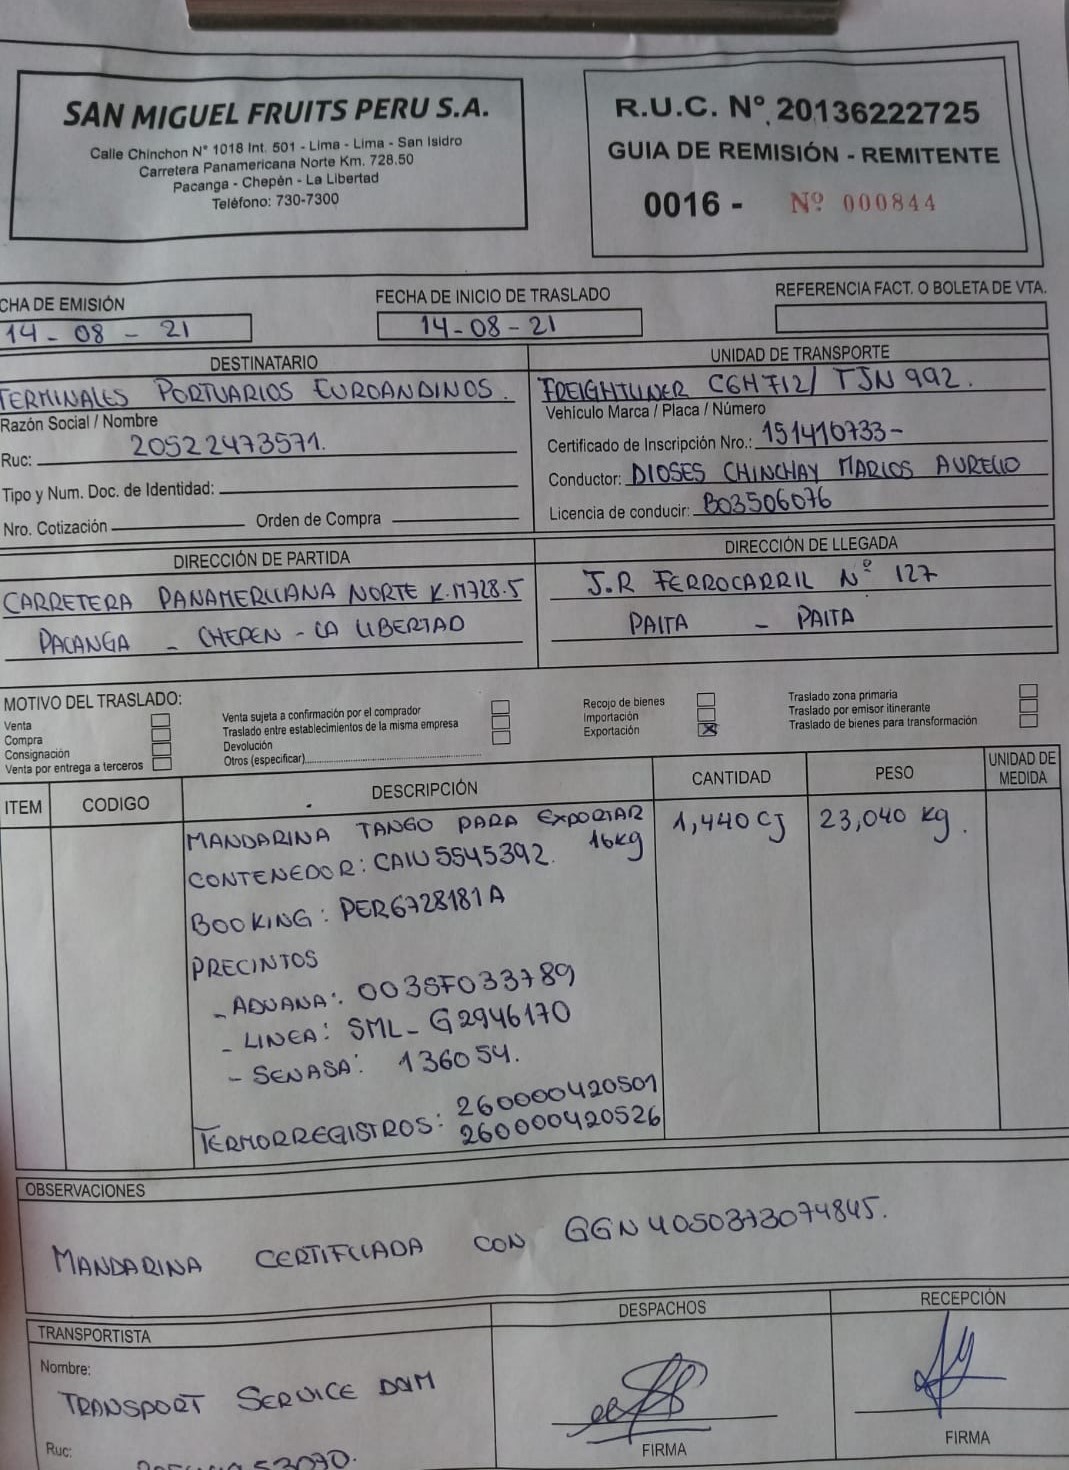 SAN MIGUEL FRUITS PERU S.A.
Calle Chinchon N° 1018 Int. 501 - Lima - Lima - San Isidro
Carretera Panamericana Norte Km. 728.50
Pacanga - Chepén - La Libertad
Teléfono: 730-7300
R.U.C. N° 20136222725
GUIA DE REMISIÓN - REMITENTE
0016 - Nº 000844
CHA DE EMISIÓN
14 - 08 - 21
FECHA DE INICIO DE TRASLADO
14 - 08 - 21
REFERENCIA FACT. O BOLETA DE VTA.
DESTINATARIO
TERMINALES PORTUARIOS EUROANDINOS.
Razón Social / Nombre
Ruc: 20522473571.
Tipo y Num. Doc. de Identidad:
Nro. Cotización Orden de Compra
UNIDAD DE TRANSPORTE
FREIGHTLINER C6H712/ TJN 992.
Vehículo Marca / Placa / Número
Certificado de Inscripción Nro.: 151410733-
Conductor: DIOSES CHINCHAY MARIOS AURELIO
Licencia de conducir: B03506076
DIRECCIÓN DE PARTIDA
CARRETERA PANAMERICANA NORTE K.M728.5
PACANGA - CHEPEN - LA LIBERTAD
DIRECCIÓN DE LLEGADA
J.R FERROCARRIL Nº 127
PAITA - PAITA
MOTIVO DEL TRASLADO:
Venta
Compra
Consignación
Venta por entrega a terceros
Venta sujeta a confirmación por el comprador
Traslado entre establecimientos de la misma empresa
Devolución
Otros (especificar)
Recojo de bienes
Importación
Exportación X
Traslado zona primaria
Traslado por emisor itinerante
Traslado de bienes para transformación
ITEM CODIGO DESCRIPCIÓN CANTIDAD PESO UNIDAD DE MEDIDA
MANDARINA TANGO PARA EXPORTAR 1,440 CJ 23,040 kg.
16kg
CONTENEDOR: CAIU 5545392.
BOOKING: PER6728181A
PRECINTOS
- ADUANA: 003SF033789
- LINEA: SML - G2946170
- SENASA: 136054.
TERMORREGISTROS: 260000420501
260000420526
OBSERVACIONES
MANDARINA CERTIFICADA CON GGN 4050373074845.
TRANSPORTISTA
Nombre:
TRANSPORT SERVICE D&M
Ruc:
DESPACHOS
FIRMA
RECEPCIÓN
FIRMA